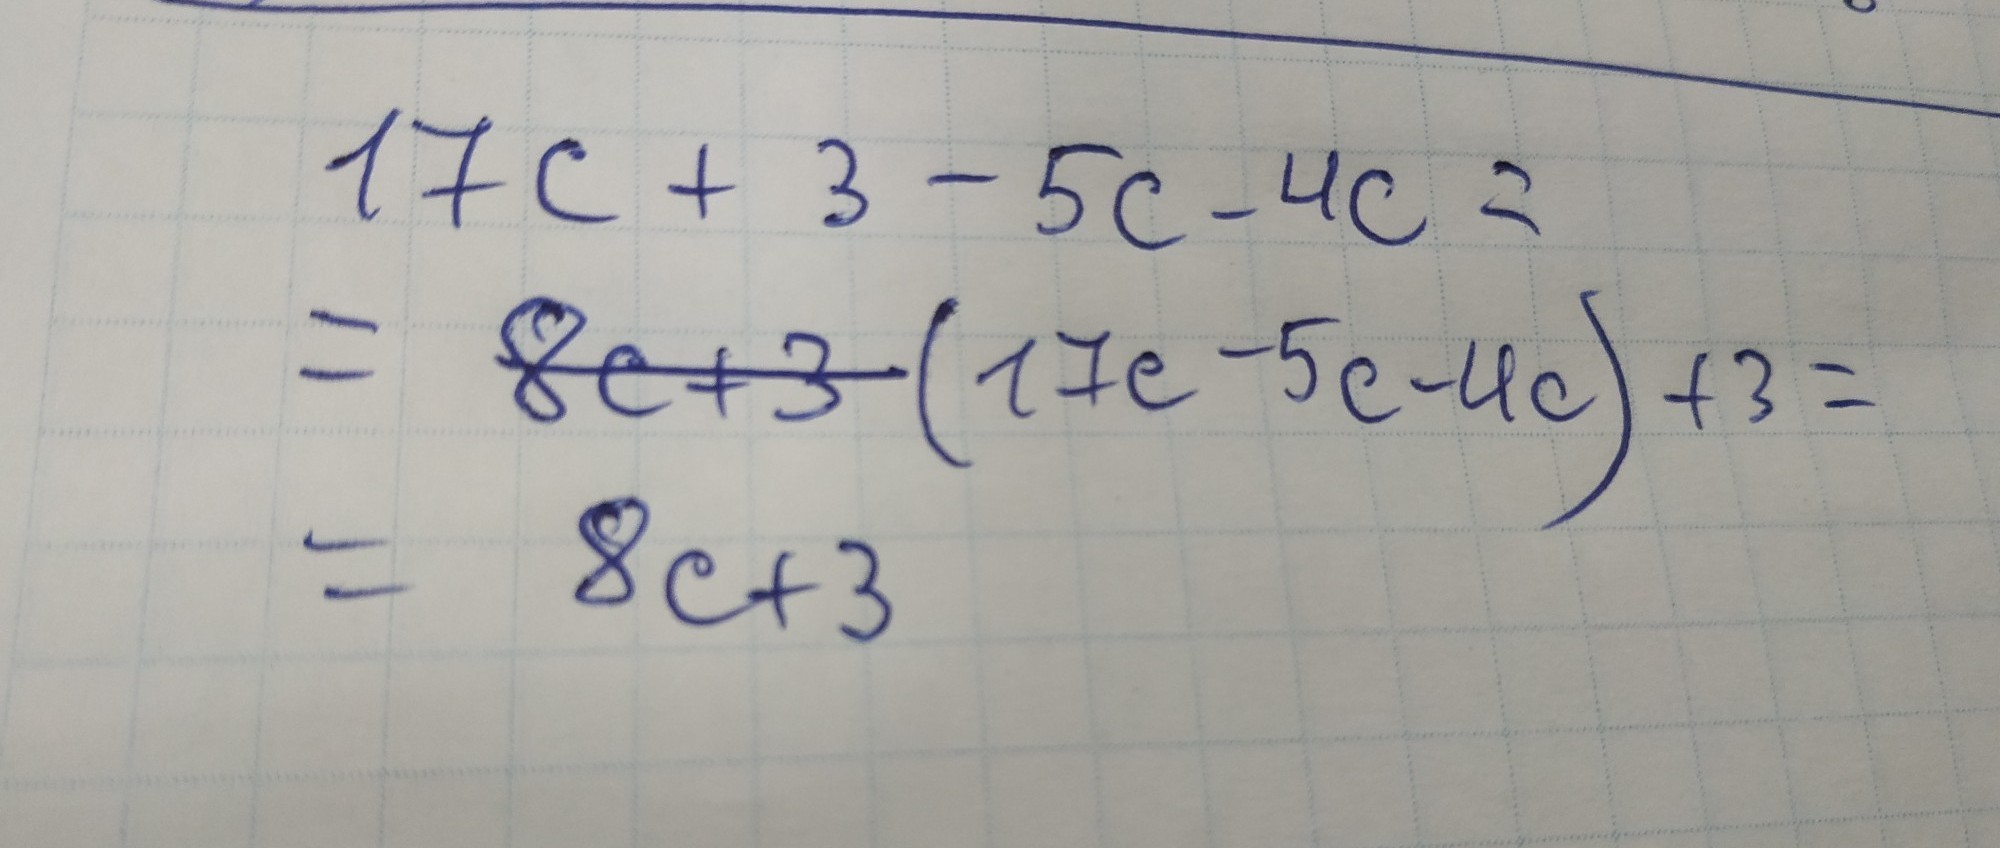 17c + 3 - 5c - 4c =
= 8c+3 (17c - 5c - 4c) + 3 =
= 8c+3